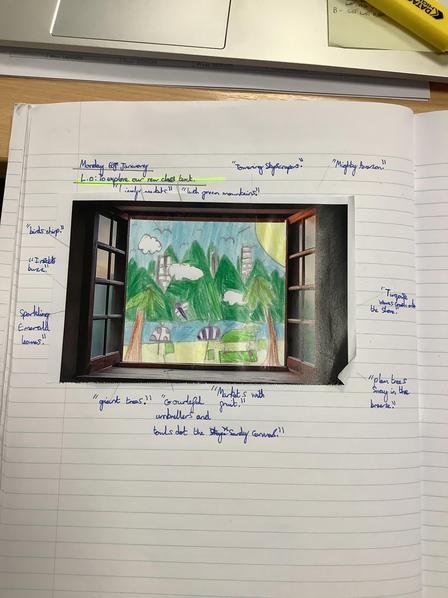 Monday 6th January
L.O: To explore our new class text.
"Towering Skyscrapers"
"Mighty Amazon"
"lush green mountains"
"birds chirp"
"Insects buzz"
Sparkling
Emerald
leaves."
"Turquoise
waves crash onto
the shore."
"palm trees
Sway in the
breeze."
"giant trees."
"Colourful
umbrellers and
towls dot the Sandy canvas."
"Markets with
fruit."